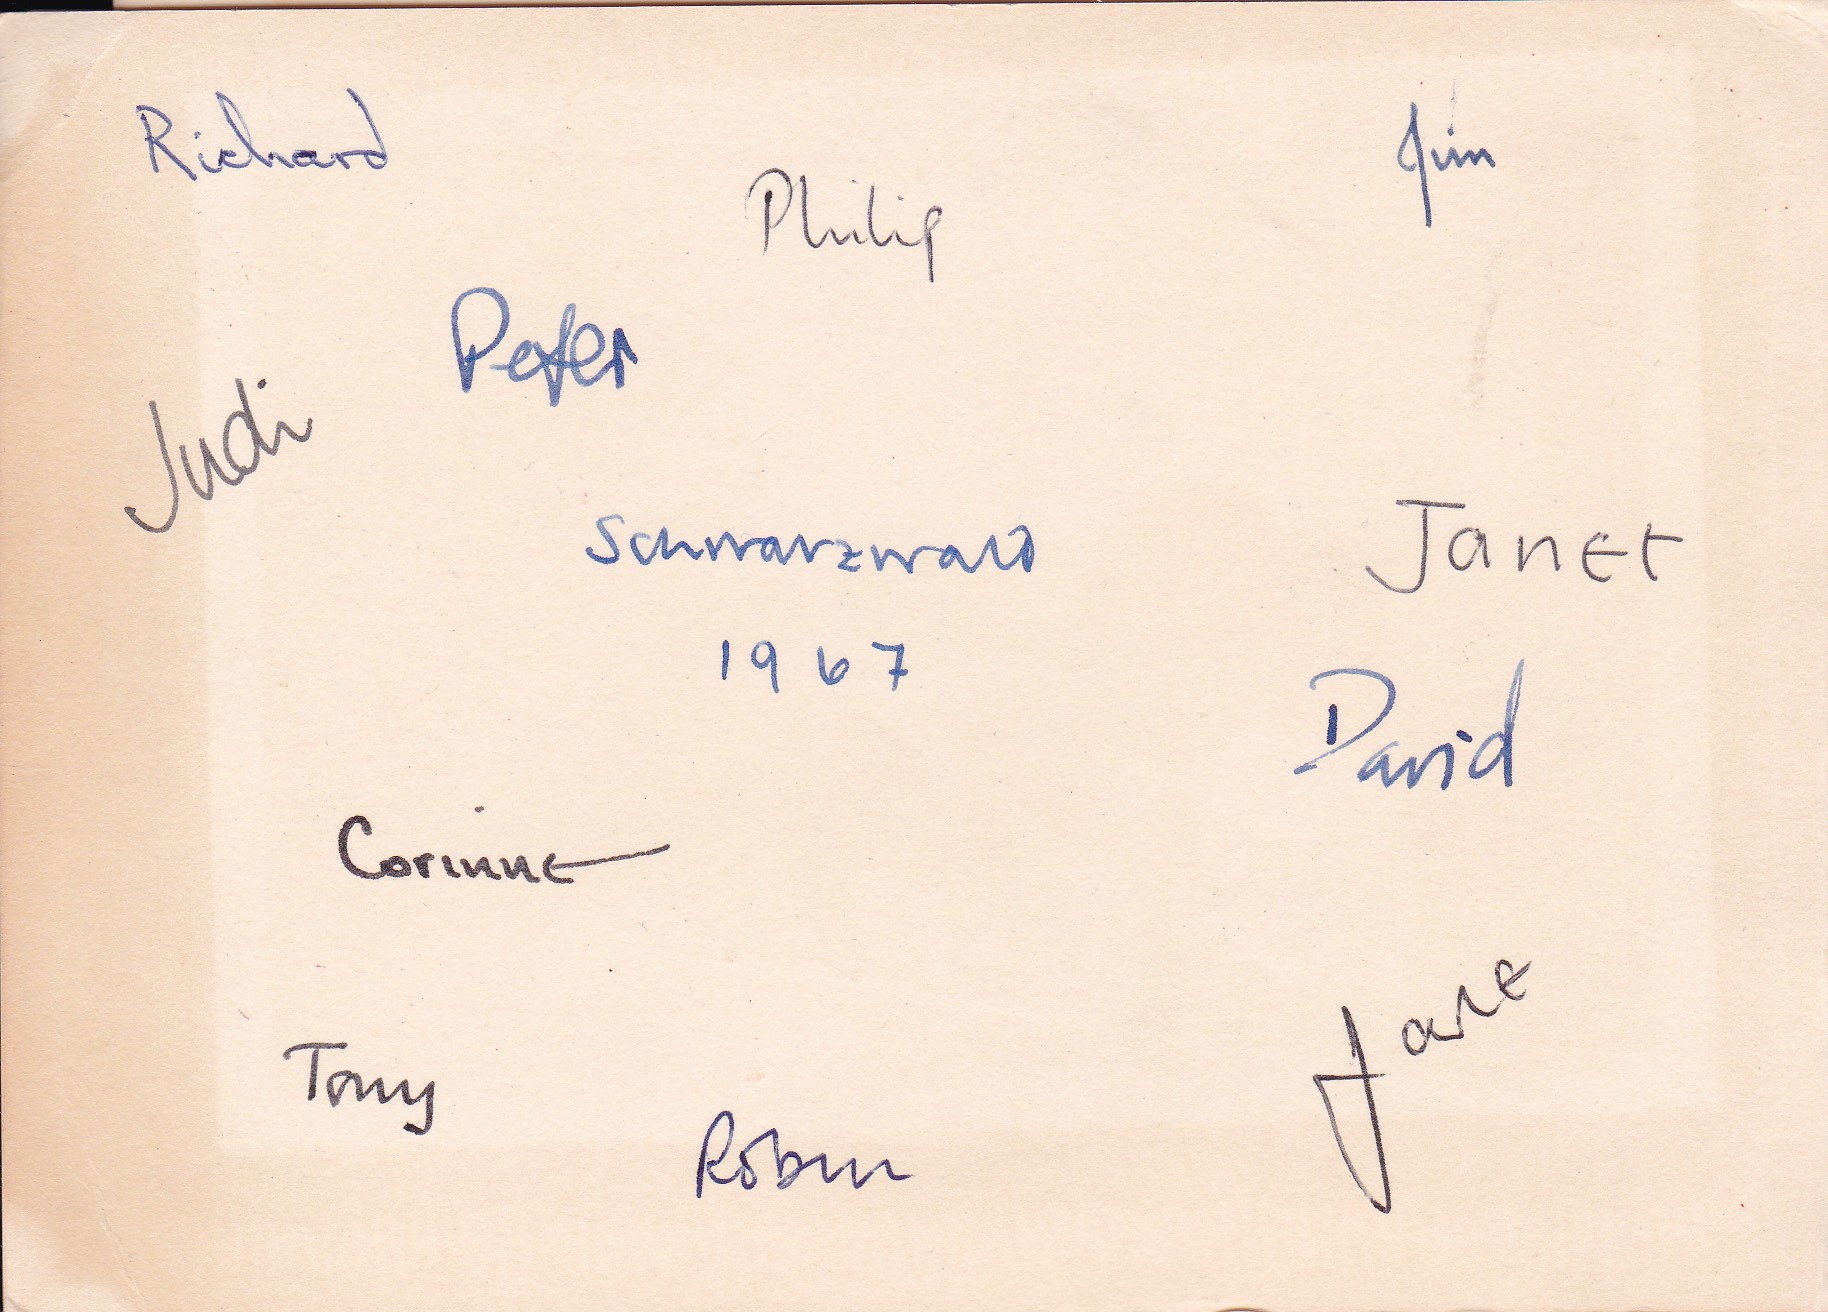 Richard
Jim
Philip
Peter
Judi
Schwarzwald
1967
Janet
David
Corinne
Jane
Tony
Robin